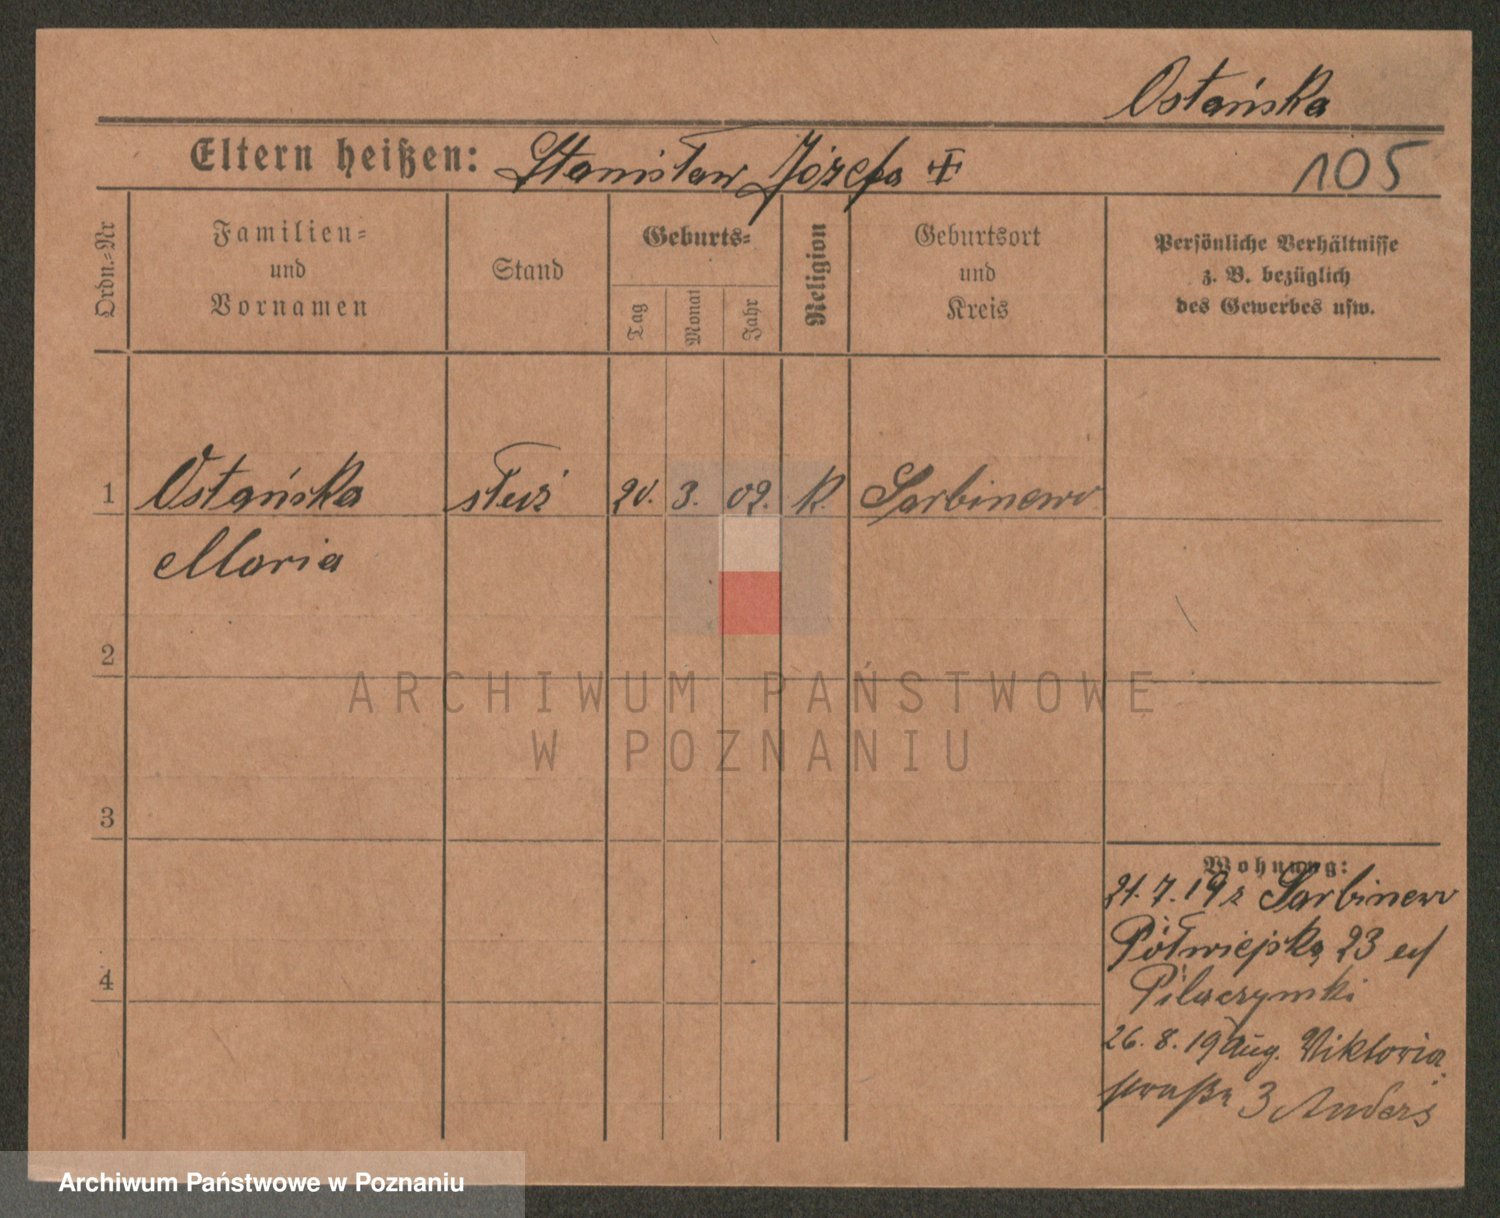 Ostańska
Eltern heißen: Stanisław Józefa
105
Ordn.=Nr
Familien=
und
Vornamen
Stand
Geburts=
Tag
Monat
Jahr
Religion
Geburtsort
und
Kreis
Persönliche Verhältnisse
z. B. bezüglich
des Gewerbes usw.
1 Ostańska służ 20. 3. 02. K. Sarbinowo
Maria
2
3
4
Wohnung:
21. 7. 19 z Sarbinowo
Półwiejska 23
Pilaczyński
26. 8. 19 Aug. Viktoria
straße 3 Anders
ARCHIWUM PAŃSTWOWE
W POZNANIU
Archiwum Państwowe w Poznaniu